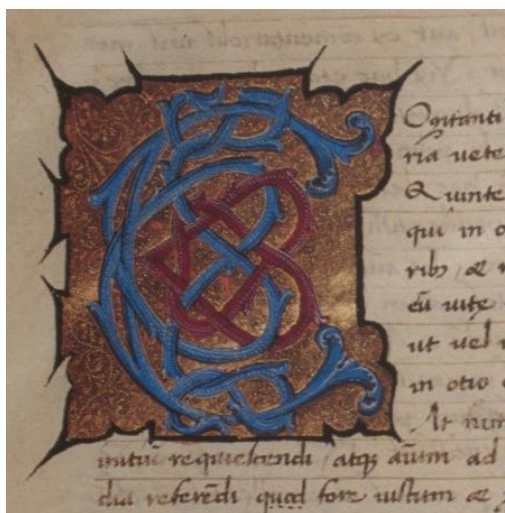 C
Ogitanti
ria uete
Quinte
qui in o
ribꝫ, ae
eū uite
ut uel
in otio
At num
initiū requiescendi, atqꝫ aīum ad
dia referēdi, quod fore iustum ae